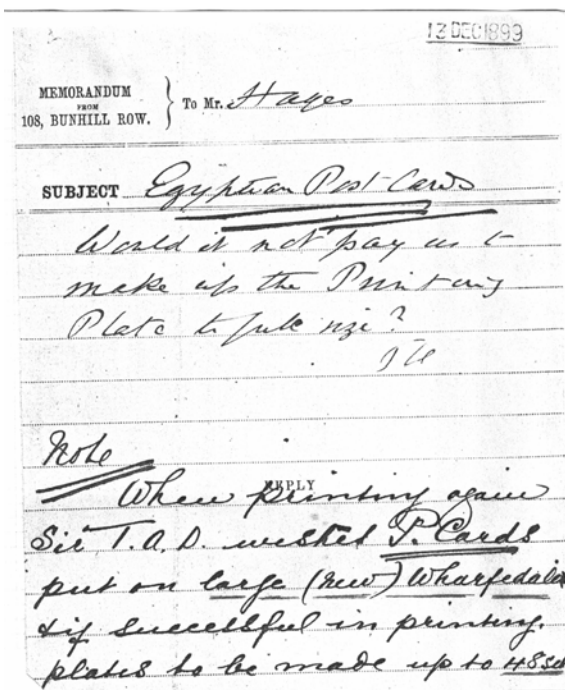 13 DEC 1899
MEMORANDUM
FROM
108, BUNHILL ROW.
To Mr. Hayes
SUBJECT Egyptian Post Cards
Would it not pay us to
make up the Printing
Plate to full size?
Note
REPLY
When printing again
Sir T.A.D. wished P. Cards
put on large (new) Wharfedale
& if successful in printing.
plates to be made up to